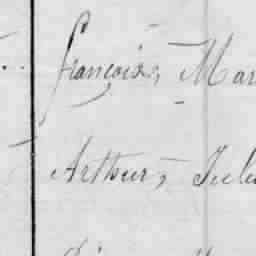 françois, Mar
Arthur, Jule